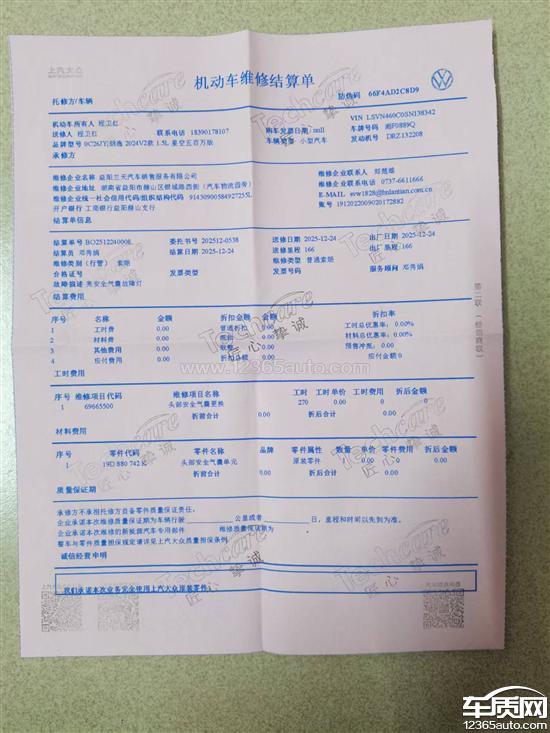 上汽大众
机动车维修结算单
托修方/车辆
防伪码 66F4AD2C8D9
机动车所有人 程卫红
VIN LSVN460C0SN138342
送修人 程卫红 联系电话 18390178107 购车发票日期 null 车牌号码 湘F0889Q
品牌型号 0C26JY|朗逸 2024V2款 1.5L 星空五百万版 车辆类型 小型汽车 发动机号 DRZ132208
承修方
维修企业名称 益阳兰天汽车销售服务有限公司 维修企业联系人 郑楚瑶
维修企业地址 湖南省益阳市赫山区银城路西街（汽车物流园旁） 维修企业联系电话 0737-6611666
维修企业统一社会信用代码/组织结构代码 91430900584927255L E-MAIL svw1828@hnlantian.com.cn
开户银行 工商银行益阳赫山支行 账号 1912022009020178882
结算单信息
结算单号 BO2512240008 委托书号 202512-0538 送修日期 2025-12-24 出厂日期 2025-12-24
结算员 邓秀娟 结算日期 2025-12-24 送修里程 166 出厂里程 166
维修类别(行管) 索赔 维修类型 普通索赔
合格证号 发票类型 发票号码 服务顾问 邓秀娟
故障描述 亮安全气囊故障灯
结算费用
序号 名称 金额 折扣金额 金额 折扣率
1 工时费 0.00 普通折扣 0.00 工时总优惠率：0.00%
2 材料费 0.00 抵扣 0.00 材料总优惠率：0.00%
3 其他费用 0.00 收整 0.00 预售冲抵：0.00
4 应付费用 0.00 折扣总额 0.00 应付金额 0
工时费用
序号 维修项目代码 维修项目名称 工时 工时单价 工时费用 折后金额
1 69665500 头部安全气囊更换 270 0.00 0 0.00
折前合计 0.00 折后合计 0.00
材料费用
序号 零件代码 零件名称 品牌 零件属性 数量 单价 零件费用 折后金额
1 19D 880 742 K 头部安全气囊单元 原装零件 1 0.00 0 0.00
折前合计 0.00 折后合计 0.00
质量保证期
承修方不承担托修方自备零件质量保证责任。
企业承诺本次维修质量保证期为车辆行驶 公里或者 日，里程和时间以先到为准。
企业承诺本次维修的新能源汽车专用部件 维修质量保证期为
整车与零件质量担保规定请详见上汽大众质量担保条例
诚信经营申明
我们承诺本次业务完全使用上汽大众原装零件！
第二联
Techcare
匠心挚诚
www.12365auto.com
车质网
12365auto.com